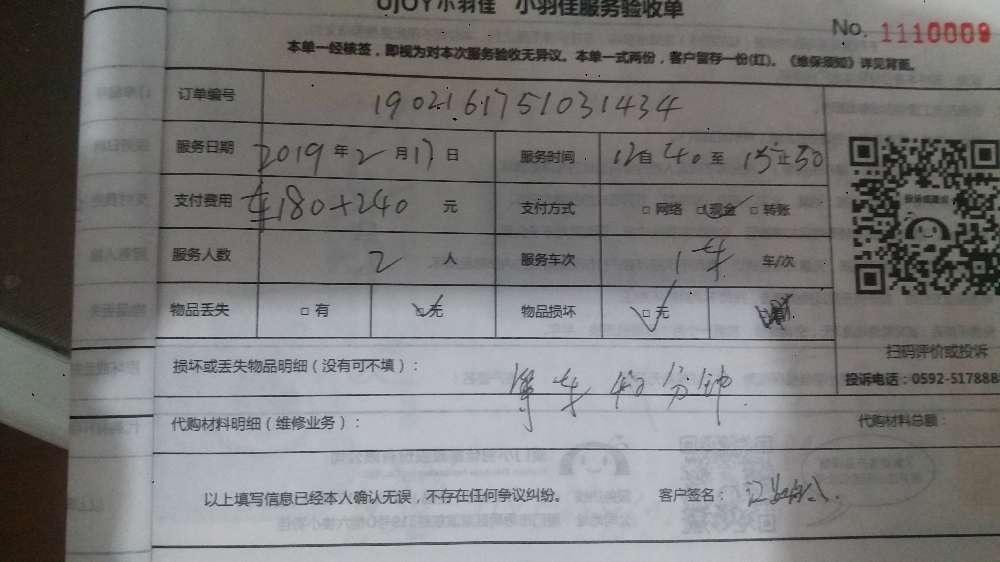 UJOY小羽佳 小羽佳服务验收单
No. 1110009
本单一经核签，即视为对本次服务验收无异议。本单一式两份，客户留存一份(红)。《维保须知》详见背面。
订单编号 1902161751031434
服务日期 2019年2月17日 服务时间 12自40至15止50
支付费用 车180+240元 支付方式 □网络 □现金 □转账
服务人数 2人 服务车次 1车 车/次
物品丢失 □有 □无 物品损坏 □无
扫码评价或投诉
损坏或丢失物品明细（没有可不填）：
投诉电话：0592-517888
等车40分钟
代购材料明细（维修业务）： 代购材料总额：
以上填写信息已经本人确认无误，不存在任何争议纠纷。 客户签名：